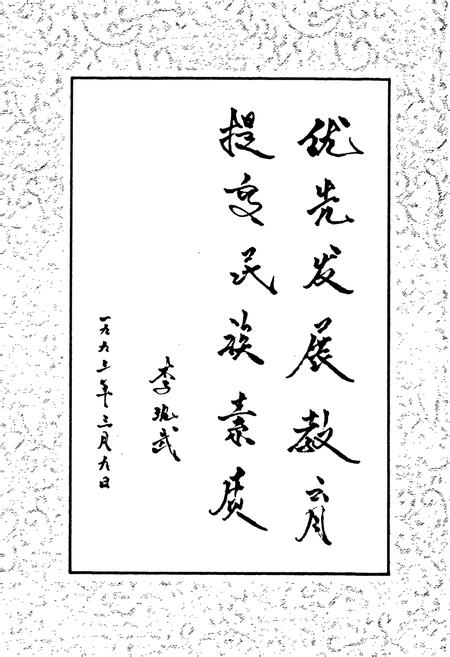 优先发展教育
提高民族素质
李 武
一九九三年三月九日